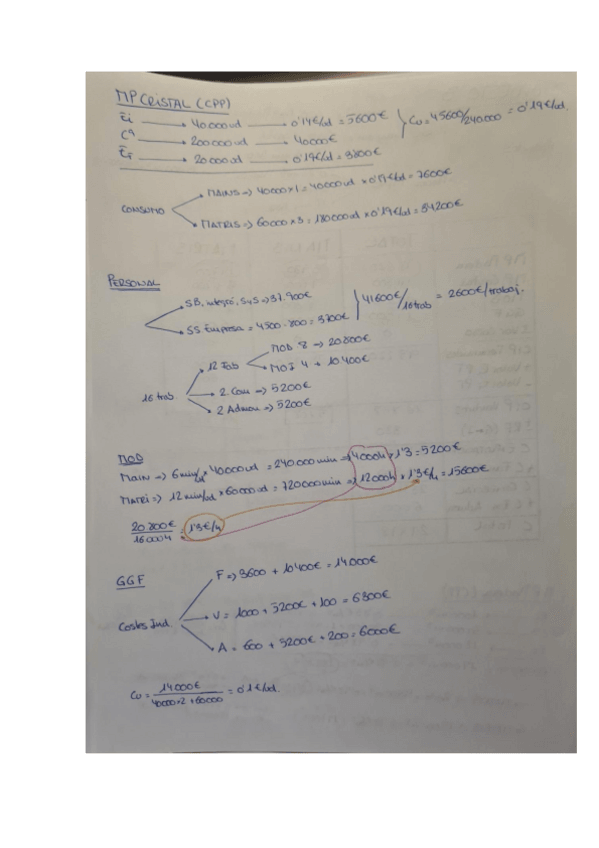 MP CRISTAL (CPP)
Ei → 40000 ud → 0'14€/ud = 5600€
Cª → 200000 ud → 40000€
Cu = 45600/240000 = 0'19€/ud.
Ef → 20000 ud → 0'19€/ud = 3800€
CONSUMO
MAINS => 40000 x 1 = 40000 ud x 0'19€/ud = 7600€
MATRIS => 60000 x 3 = 180000 ud x 0'19€/ud = 34200€
PERSONAL
SB, => 37.900€
SS Empresa = 4500 - 800 = 3700€
41600€/16 trab = 2600€/trabaj.
16 trab.
12 Fab
MOD 8 → 20800€
MOI 4 → 10400€
2 Com => 5200€
2 Admon => 5200€
MOD
MAIN => 6 min/ud x 40000 ud = 240000 min => 4000h x 1'3 = 5200€
MATRI => 12 min/ud x 60000 ud = 720000 min => 12000h x 1'3€/h = 15600€
20800€/16000h = 1'3€/h
GGF
Costes Ind.
F => 3600 + 10400€ = 14000€
V = 1000 + 5200€ + 100 = 6300€
A = 600 + 5200€ + 200 = 6000€
Cu = 14000€/40000x2+60000 = 0'1€/ud.